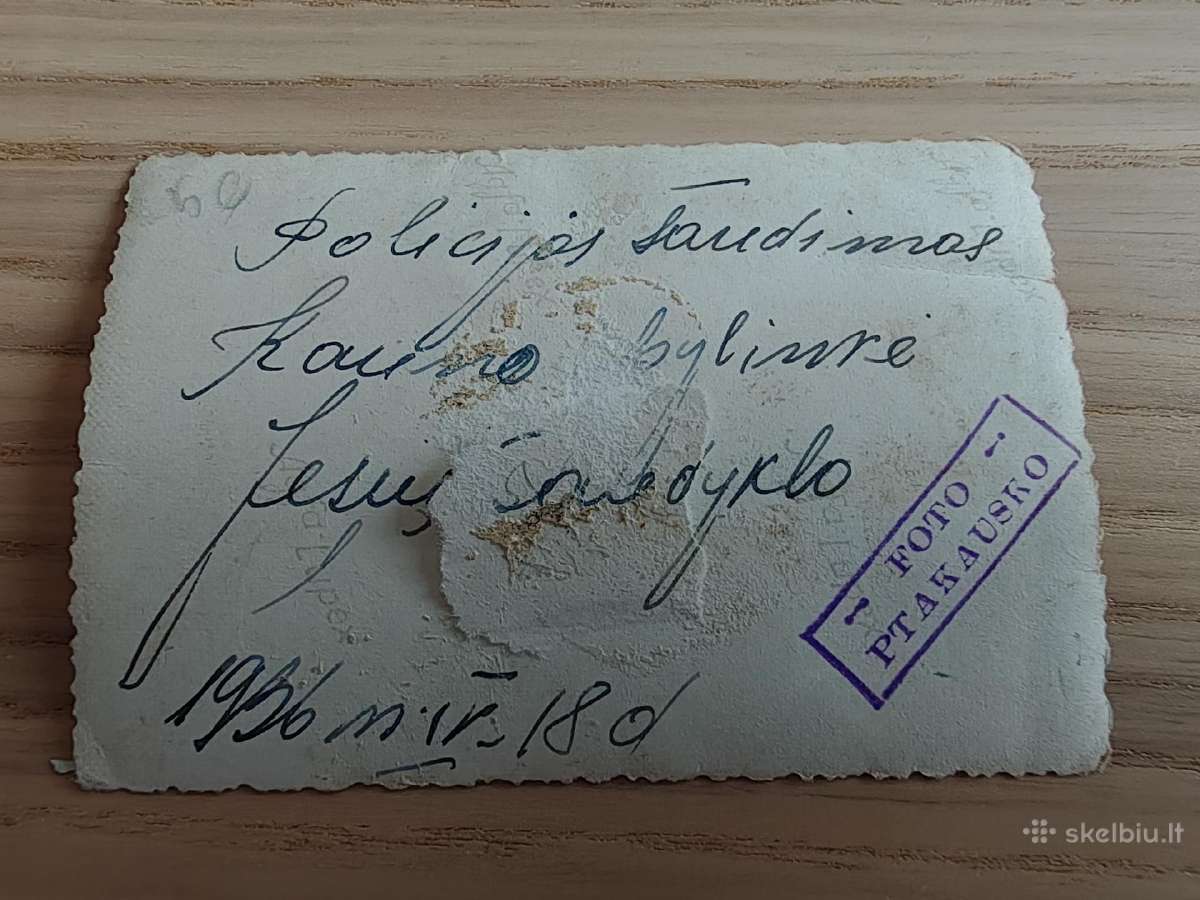 5
Policijos šaudimas
Kauno bylinkė
Jesių šaudyklo
1936 m. IV. 18 d
FOTO
PTAKAUSKO
skelbiu.lt